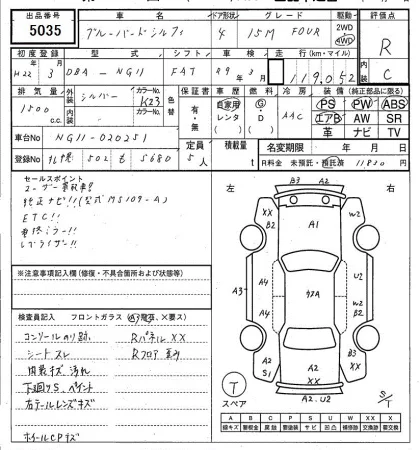 出品番号 車名 ドア形状 グレード 駆動 評価点
5035 ブルーバードシルフィ 4 15M FOUR 2WD 4WD R
初度登録 型式 シフト 車検 走行 (km・マイル) C
H22 3月 DBA-NG11 FAT R9年 3月 119,052
排気量 外装 シルバー カラーNo. K23 色替 保証書 車歴 燃料 冷房 装備 (純正部品に限る)
1500 c.c. 内装 カラーNo. 有・無 自家用 レンタ G・D AAC PS PW ABS
エアB AW SR
革 ナビ TV
車台No NG11-020251
定員 5人 積載量 t 名変期限 年 月 日
登録No 札幌 502 も 5680
R料金 未預託・預託済 11830 円
セールスポイント
ユーザー買取車!
純正ナビ!!(公式MS109-A)
ETC!!
電格ミラー!!
レブライザー!!
※注意事項記入欄 (修復・不具合箇所および状態等)
検査員記入 フロントガラス (A3飛石、×要ス)
コンソールのり跡 RパネルXX
シートスレ Rフロア歪み
内装キズ 汚れ
下廻りS、ペイント
右テールレンズキズ
ホイールCPキズ
左 右
A3 A2
XX B2 A1 W2 B2
A3 A4 A4 U2 W2
A2 S1 A2 XX B3 XX
A2、U2
T スペア S/T
A B C P S U W X XX
線キズ 要板金 腐蝕 要塗装 サビ 凹ミ 補修跡 要交換 交換済